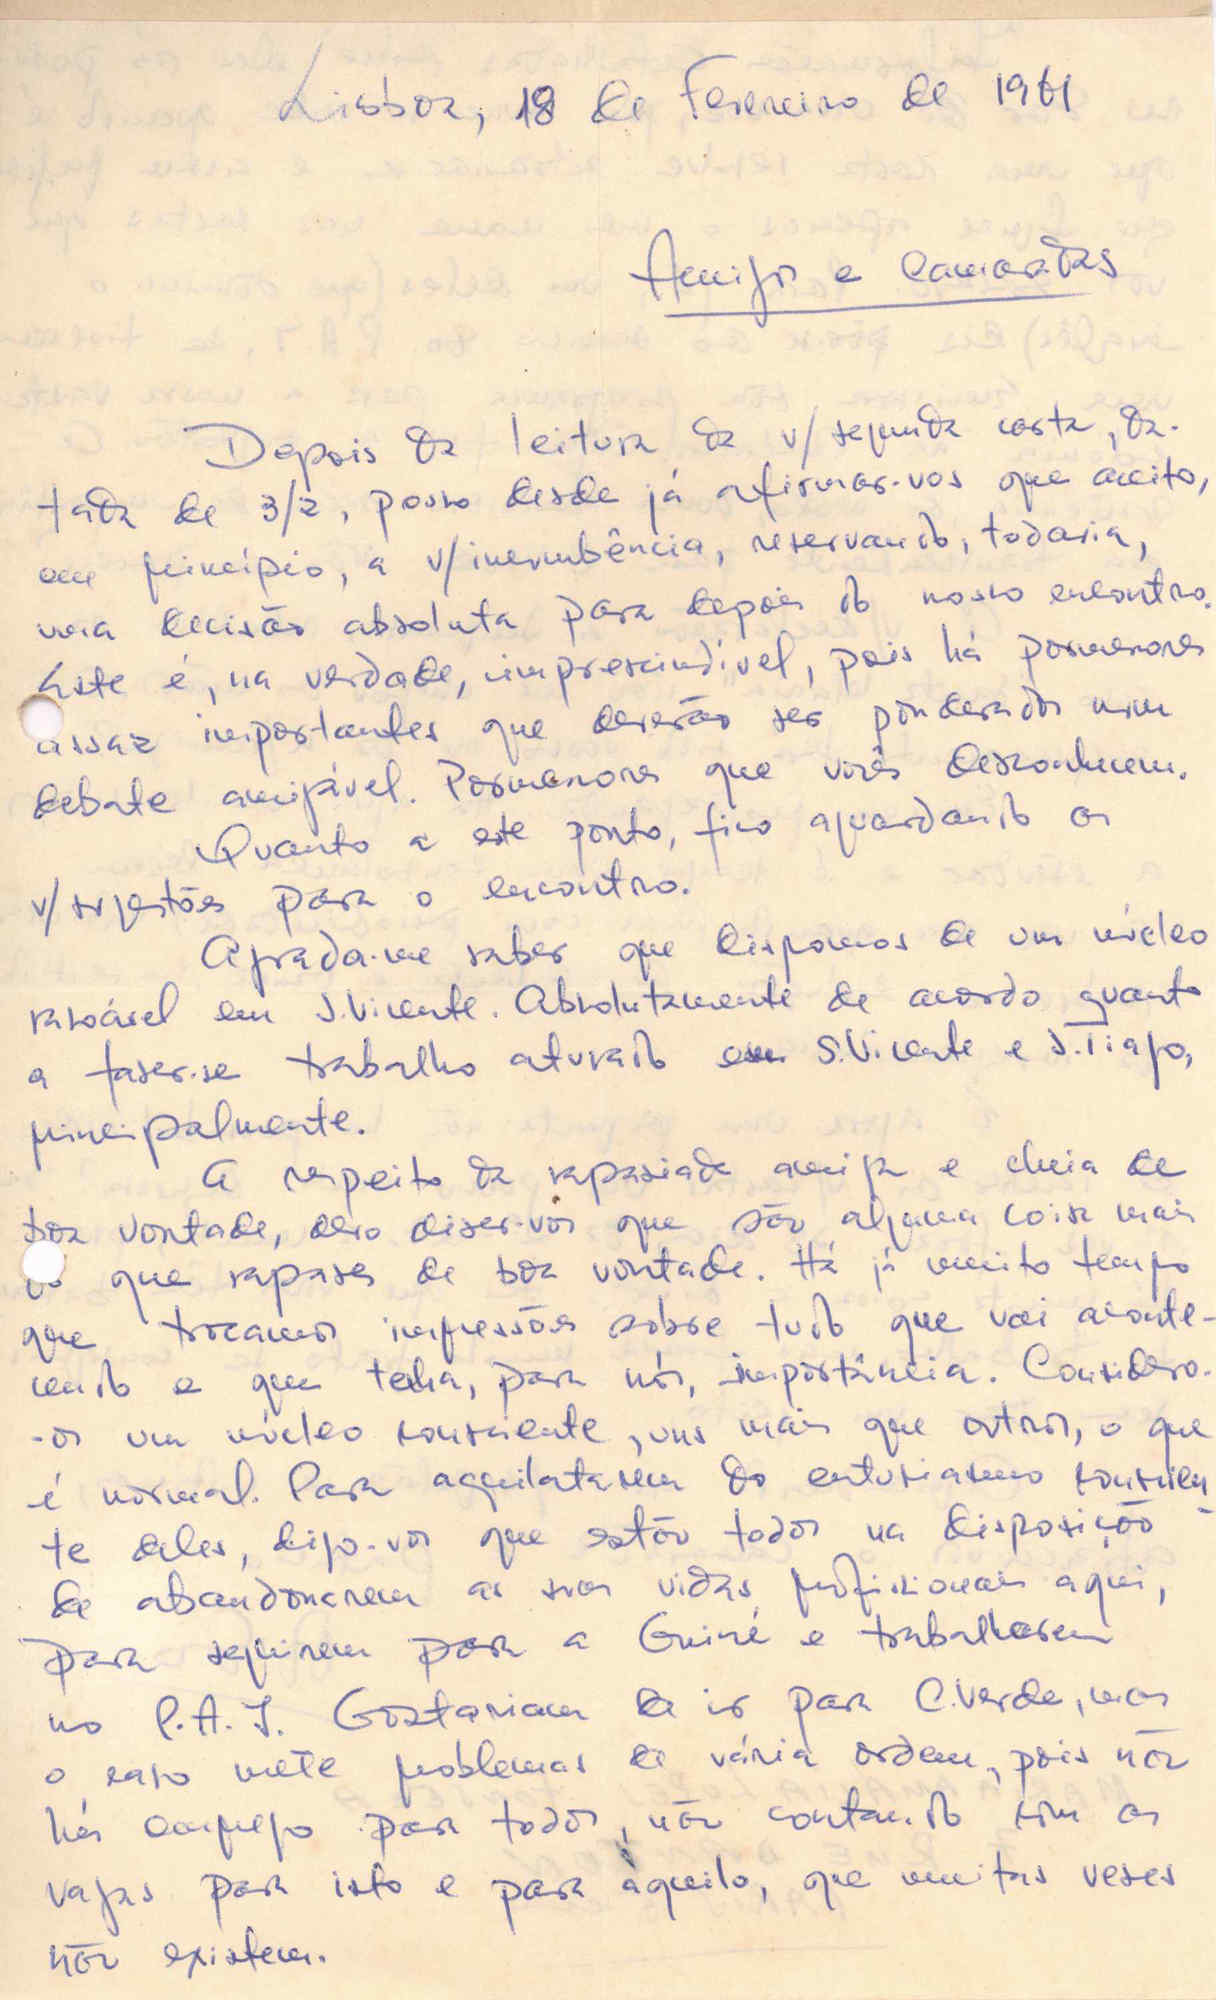 Lisboa, 18 de Fevereiro de 1961
Amigos e camaradas
Depois da leitura da v/ segunda carta, da-
tada de 3/2, posso desde já afirmar-vos que aceito,
em princípio, a v/ incumbência, reservando, todavia,
uma decisão absoluta para depois do nosso encontro.
Este é, na verdade, imprescindível, pois há pormenores
assaz importantes que deverão ser ponderados num
debate amigável. Pormenores que vocês desconhecem.
Quanto a este ponto, fico aguardando as
v/ sugestões para o encontro.
Agrada-me saber que dispomos de um núcleo
razoável em S. Vicente. Absolutamente de acordo quanto
a fazer-se trabalho aturado em S. Vicente e S. Tiago,
principalmente.
A respeito da rapaziada amiga e cheia de
boa vontade, devo dizer-vos que são alguma coisa mais
do que rapazes de boa vontade. Há já muito tempo
que trocamos impressões sobre tudo que vai aconte-
cendo e que tenha, para nós, importância. Considero-
-os um núcleo consciente, uns mais que outros, o que
é normal. Para aquilatarem do entusiasmo conscien-
te deles, digo-vos que estão todos na disposição
de abandonarem as suas vidas profissionais aqui,
para seguirem para a Guiné e trabalharem
no P.A.I. Gostariam de ir para C. Verde, mas
o caso mete problemas de vária ordem, pois não
há emprego para todos, não contando com as
vagas para isto e para àquilo, que muitas vezes
não existem.